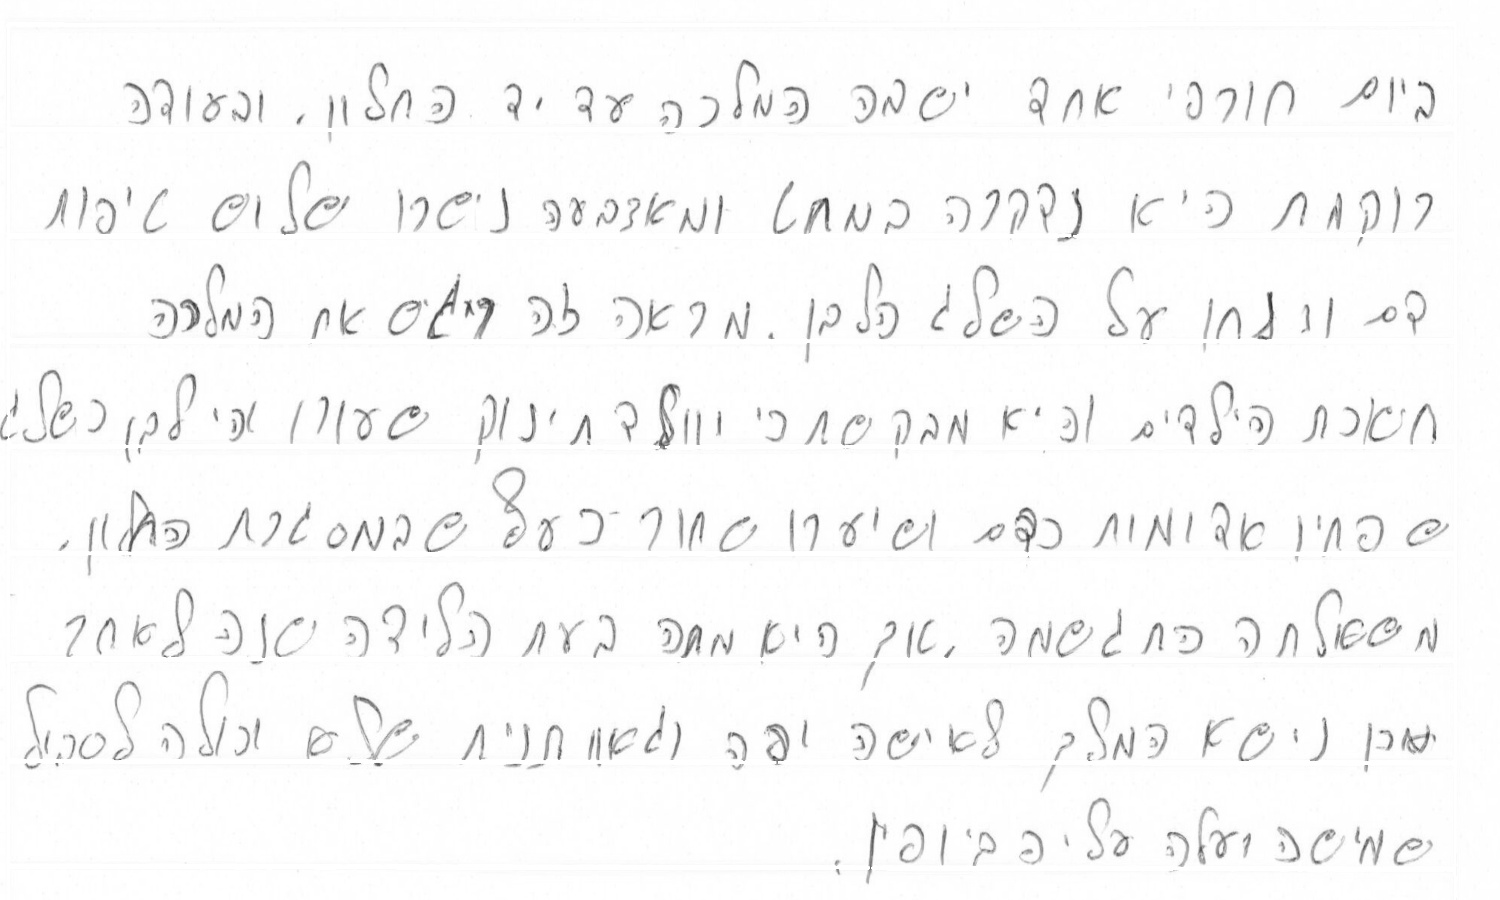 ביום חורפי אחד ישבה המלכה עד יד החלון. ובעודה
רוקמת היא נדקרה במחט ומאצבעה נישרו שלוש טיפות
דם וינחו על השלג הלבן. מראה זה ריגש את המלכה
חשוכת הילדים והיא מבקשת כי יוולד תינוק שעורו יהי לבן כשלג
שפתיו אדומות כדם ושיערו שחור כעץ שבמסגרת החלון.
משאלתה התגשמה, אך היא מתה בעת הלידה שנה לאחר
מכן נישא המלך לאישה יפה וגאוותנית שלא יכולה לסבול
שמישה יעלה עליה ביופיו.